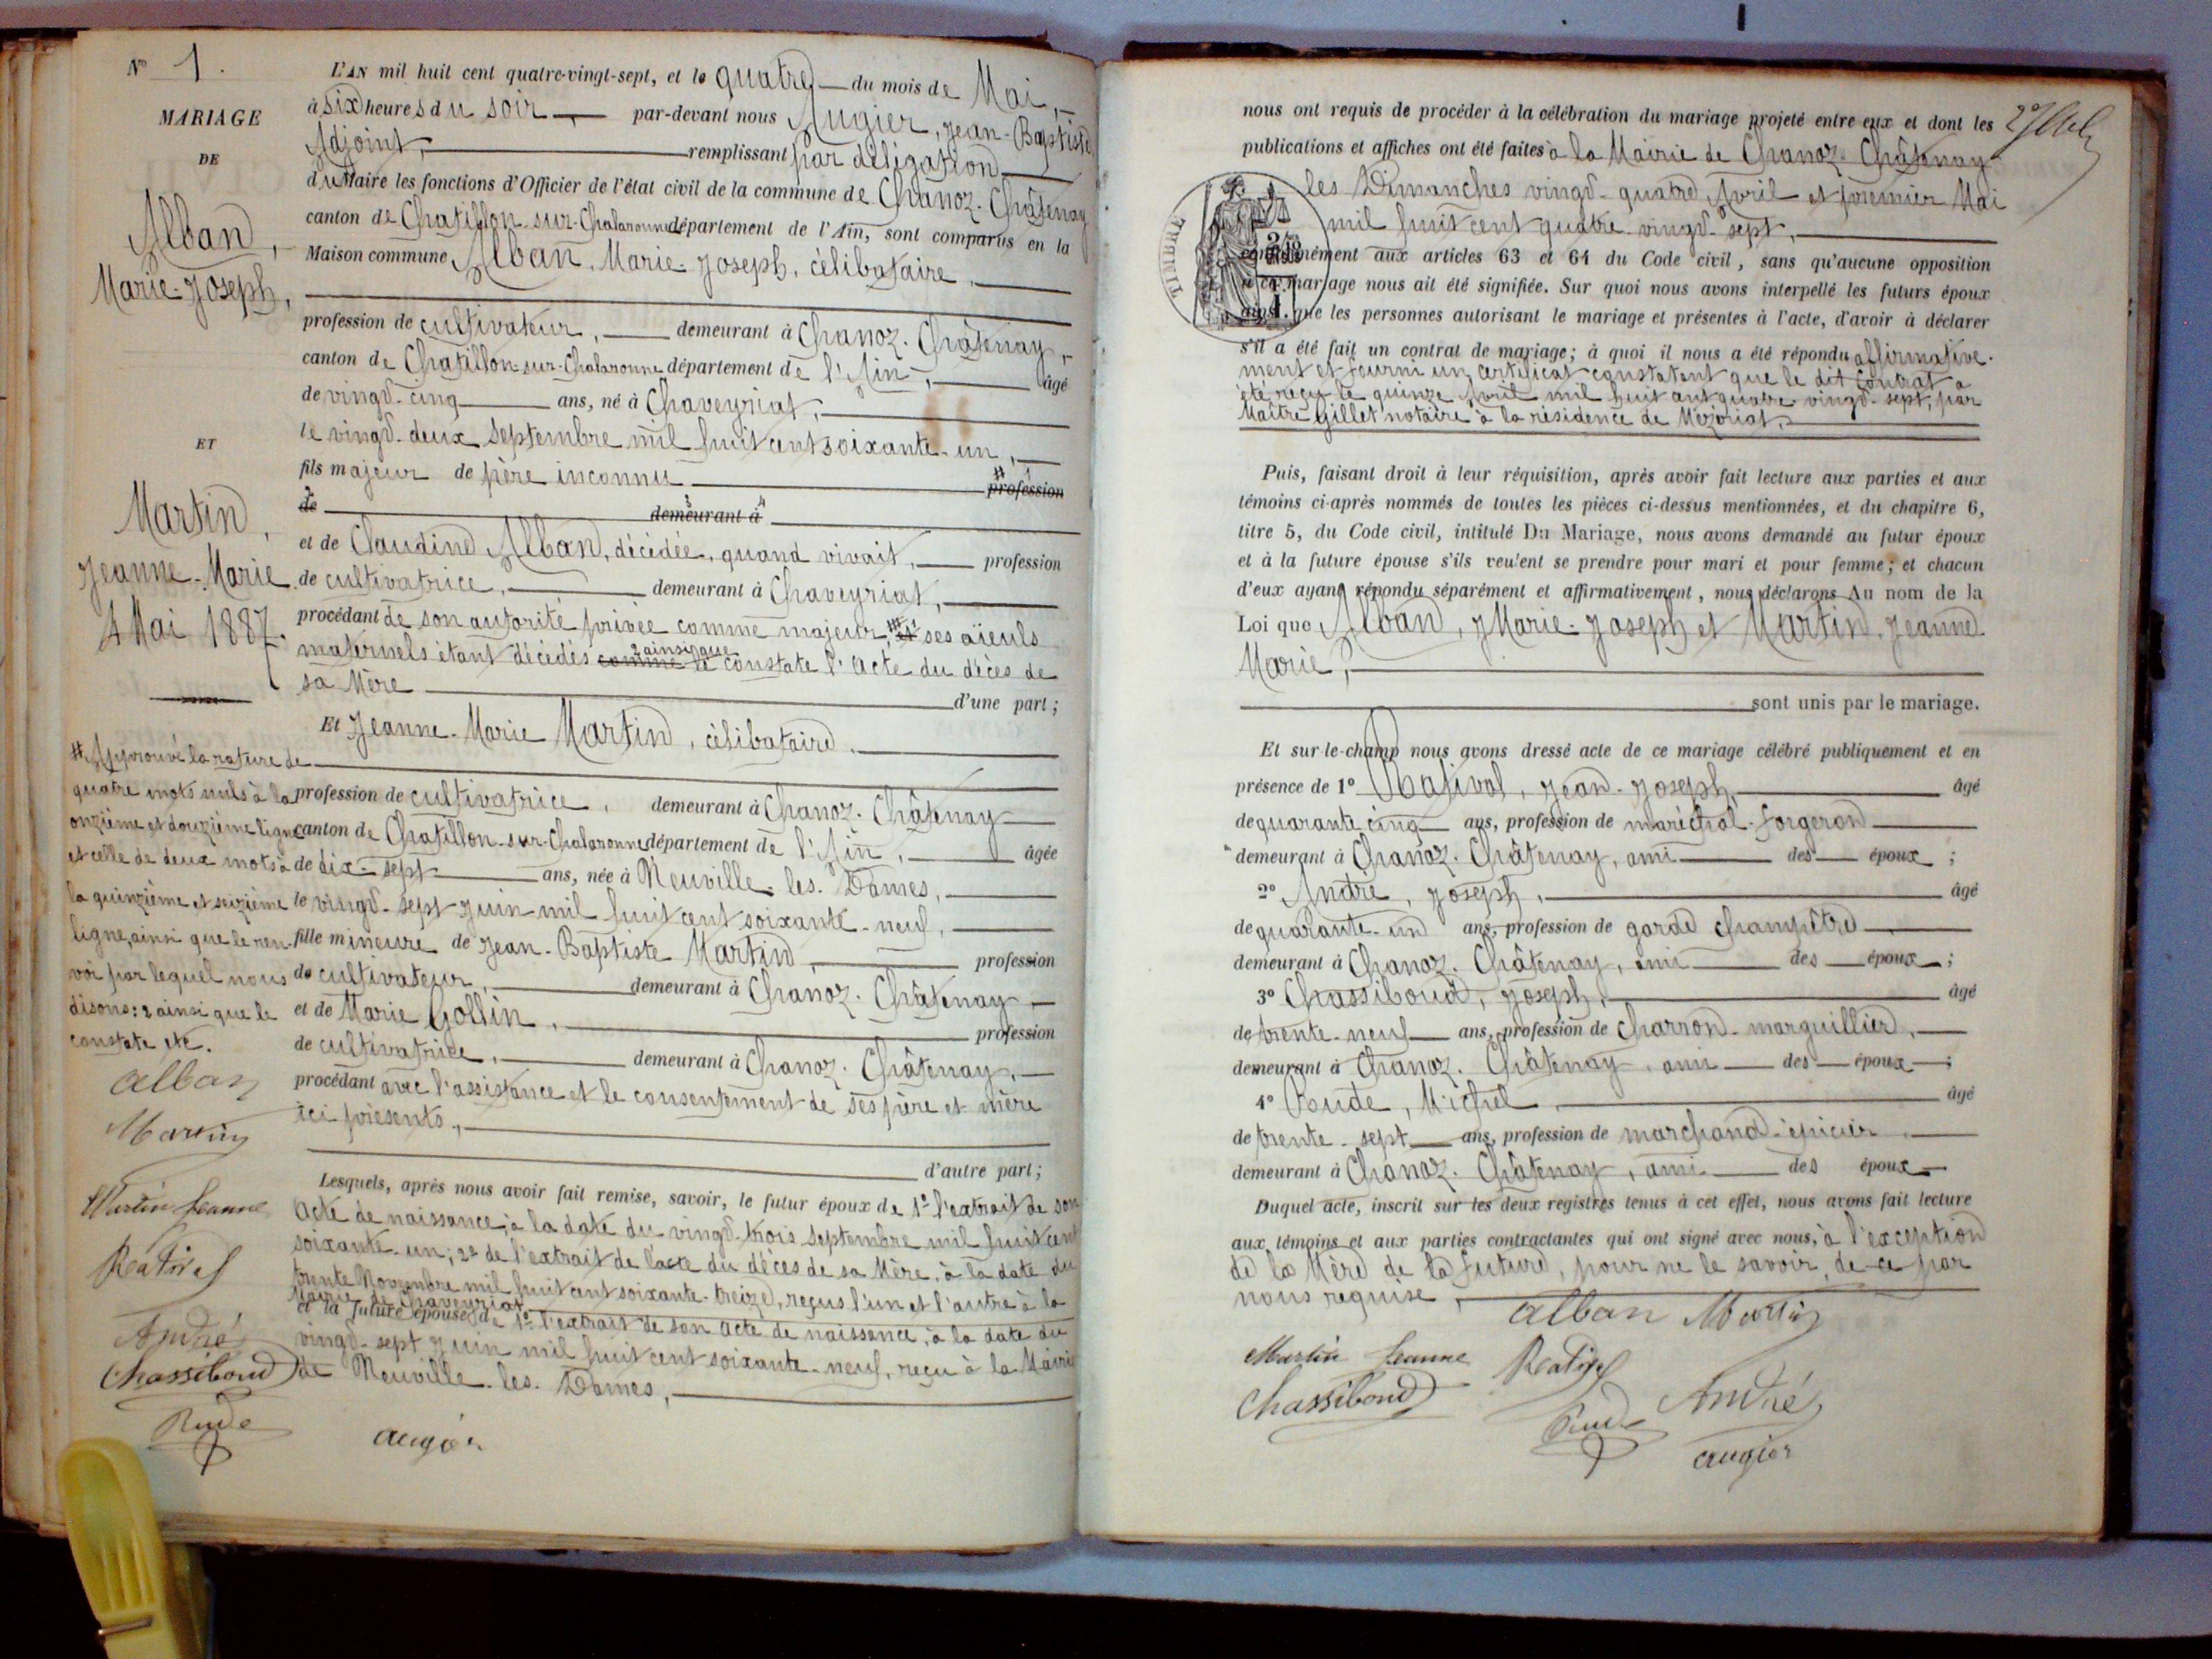 N° 1.
MARIAGE
DE
Alban,
Marie-Joseph,
ET
Martin,
Jeanne-Marie
4 Mai 1887.
# Approuvé la rature de
quatre mots nuls à la
onzième et douzième ligne
et celle de deux mots à
la quinzième et seizième
ligne, ainsi que le ren-
voi par lequel nous
disons: 2 ainsi que le
constate etc.
alban
Martin
Martin Jeanne
Ratival
André
Chassiboud
Rude
L'AN mil huit cent quatre-vingt-sept, et le quatre du mois de Mai,
à six heures du soir par-devant nous Augier, Jean-Baptiste
Adjoint, remplissant par délégation
du Maire les fonctions d'Officier de l'état civil de la commune de Chanoz-Châtenay
canton de Chatillon-sur-Chalaronne département de l'Ain, sont comparus en la
Maison commune Alban, Marie-Joseph, célibataire,
profession de cultivateur, demeurant à Chanoz-Châtenay,
canton de Chatillon-sur-Chalaronne département de l'Ain, âgé
de vingt-cinq ans, né à Chaveyriat,
le vingt-deux Septembre mil huit cent soixante-un,
fils majeur de père inconnu # 1 profession
2 de 3 4 demeurant à
et de Claudine Alban, décédée, quand vivait, profession
de cultivatrice, demeurant à Chaveyriat,
procédant de son autorité privée comme majeur, ses aïeuls
maternels étant décédés comme 2 ainsi que le constate l'acte du décès de
sa Mère d'une part;
Et Jeanne-Marie Martin, célibataire,
profession de cultivatrice, demeurant à Chanoz-Châtenay
canton de Chatillon-sur-Chalaronne département de l'Ain, âgée
de dix-sept ans, née à Neuville-les-Dames,
le vingt-sept Juin mil huit cent soixante-neuf,
fille mineure de Jean-Baptiste Martin, profession
de cultivateur, demeurant à Chanoz-Châtenay,
et de Marie Gollin, profession
de cultivatrice, demeurant à Chanoz-Châtenay,
procédant avec l'assistance et le consentement de ses père et mère
ici présents,
d'autre part;
Lesquels, après nous avoir fait remise, savoir, le futur époux de 1° l'extrait de son
acte de naissance, à la date du vingt-trois Septembre mil huit cent
soixante-un; 2° de l'extrait de l'acte du décès de sa Mère, à la date du
trente Novembre mil huit cent soixante-treize, reçus l'un et l'autre à la
Mairie de Chaveyriat
et la future épouse, de 1° l'extrait de son acte de naissance, à la date du
vingt-sept Juin mil huit cent soixante-neuf, reçu à la Mairie
de Neuville-les-Dames,
augier
nous ont requis de procéder à la célébration du mariage projeté entre eux et dont les
publications et affiches ont été faites à la Mairie de Chanoz-Châtenay
les Dimanches vingt-quatre Avril et premier Mai
mil huit cent quatre-vingt-sept,
TIMBRE
conformément aux articles 63 et 64 du Code civil, sans qu'aucune opposition
à ce mariage nous ait été signifiée. Sur quoi nous avons interpellé les futurs époux
ainsi que les personnes autorisant le mariage et présentes à l'acte, d'avoir à déclarer
s'il a été fait un contrat de mariage; à quoi il nous a été répondu affirmative-
ment et fourni un certificat constatant que le dit contrat a
été reçu le quinze Avril mil huit cent quatre-vingt-sept, par
Maître Gillet notaire à la résidence de Mézériat,
Puis, faisant droit à leur réquisition, après avoir fait lecture aux parties et aux
témoins ci-après nommés de toutes les pièces ci-dessus mentionnées, et du chapitre 6,
titre 5, du Code civil, intitulé Du Mariage, nous avons demandé au futur époux
et à la future épouse s'ils veulent se prendre pour mari et pour femme; et chacun
d'eux ayant répondu séparément et affirmativement, nous déclarons Au nom de la
Loi que Alban, Marie-Joseph et Martin, Jeanne
Marie,
sont unis par le mariage.
Et sur-le-champ nous avons dressé acte de ce mariage célébré publiquement et en
présence de 1° Ratival, Jean-Joseph, âgé
de quarante cinq ans, profession de maréchal-forgeron
demeurant à Chanoz-Châtenay, ami des époux;
2° André, Joseph, âgé
de quarante-un ans, profession de garde champêtre
demeurant à Chanoz-Châtenay, ami des époux;
3° Chassiboud, Joseph, âgé
de trente-neuf ans, profession de charron-marguillier,
demeurant à Chanoz-Châtenay, ami des époux;
4° Rude, Michel, âgé
de trente-sept ans, profession de marchand-épicier,
demeurant à Chanoz-Châtenay, ami des époux
Duquel acte, inscrit sur les deux registres tenus à cet effet, nous avons fait lecture
aux témoins et aux parties contractantes qui ont signé avec nous, à l'exception
de la Mère de la future, pour ne le savoir, de ce par
nous requise,
alban Martin
Martin Jeanne Ratival
Chassiboud Rude André
augier